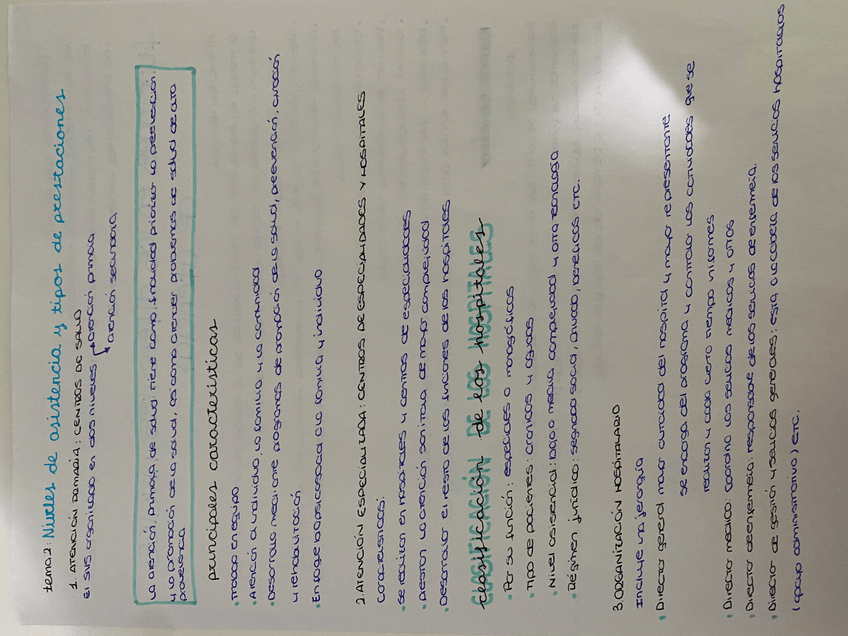 tema 2: Niveles de asistencia y tipos de prestaciones
1. ATENCIÓN PRIMARIA: CENTROS DE SALUD
El SNS organizado en dos niveles → atención primaria
atención secundaria
La atención primaria de salud tiene como finalidad principal la prevención
y la promoción de la salud, así como atender problemas de salud de alta
prevalencia
principales características
• Trabajo en equipo
• Atención al individuo, la familia y la comunidad
• Desarrollo mediante programas de promoción de la salud, prevención, curación
y rehabilitación
• Enfoque biopsicosocial a la familia y individuo
2. ATENCIÓN ESPECIALIZADA: CENTROS DE ESPECIALIDADES Y HOSPITALES
Características:
• Se realizan en hospitales y centros de especialidades
• Prestan la atención sanitaria de mayor complejidad
• Desarrollar el resto de las funciones de los hospitales
CLASIFICACIÓN DE LOS HOSPITALES
clasificación de los hospitales
• Por su función: especiales o monográficos
• Tipo de pacientes: crónicos y agudos
• Nivel asistencial: baja o media complejidad y alta tecnología
• Régimen jurídico: seguridad social, privado, benéficos etc.
3. ORGANIZACIÓN HOSPITALARIO
Incluye una jerarquía
• Director general mayor autoridad del hospital y mayor representante
se encarga del programa y controlar las actividades que se
realizan y cada cierto tiempo informes
• Director médico: coordina los servicios médicos y otros
• Director de enfermería: responsable de los servicios de enfermería.
• Director de gestión y servicios generales: está a la cabeza de los servicios hospitalarios
(apoyo administrativo) etc.